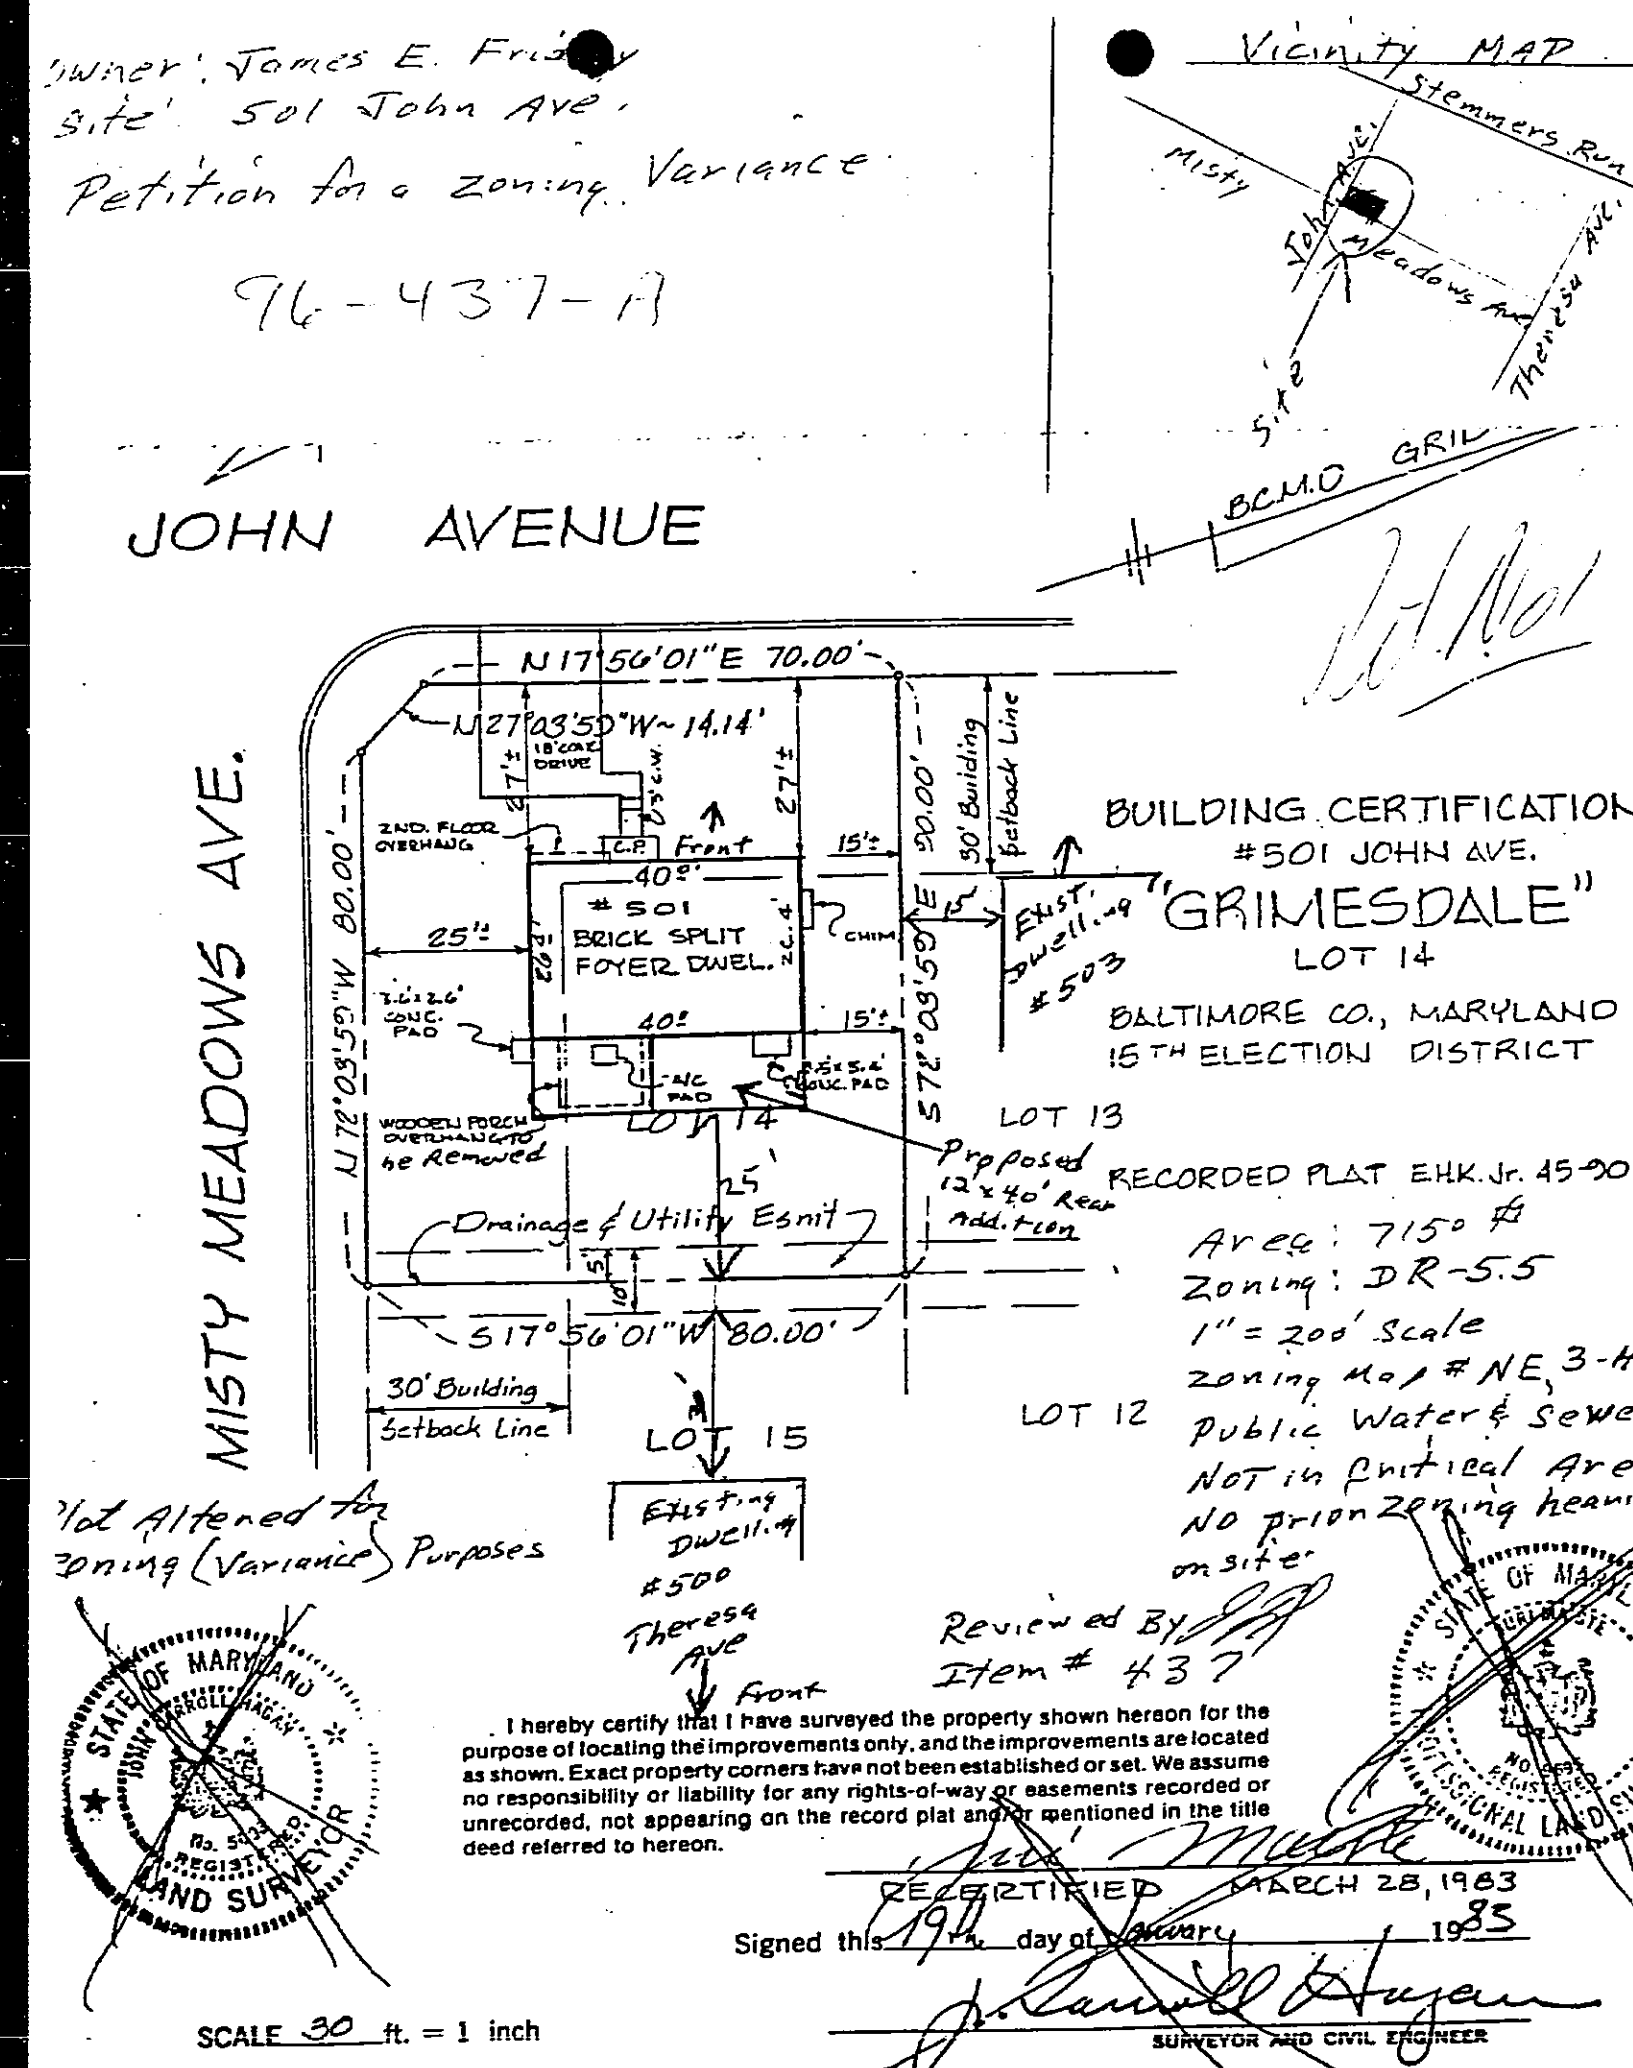 Owner: James E.
Site: 501 John Ave.
Petition for a zoning Variance
96-437-A
Vicinity MAP
Stemmers Run
Misty
John Ave.
Meadows Ave.
Theresa Ave.
Site
B.C.M.D GRID
JOHN AVENUE
MISTY MEADOWS AVE.
N 17°56'01"E 70.00'
N 27°03'59"W ~ 14.14'
18' CONC.
DRIVE
27'±
3' C.W.
27'±
2ND. FLOOR
OVERHANG
C.P.
Front
15'±
30' Building
Setback Line
S 72°03'59"E 90.00'
N 72°03'59"W 80.00'
40.0'
# 501
BRICK SPLIT
FOYER DWEL.
26.4'
CHIM.
25'±
15'
Exist.
Dwelling
#503
3.6'x2.6'
CONC.
PAD
40.0'
15'±
A/C
PAD
CONC. PAD
WOODEN PORCH
OVERHANG TO
be Removed
LOT 14
25'
Proposed
12'x40' Rear
Addition
LOT 13
Drainage & Utility Esmt
5'
10'
S 17°56'01"W 80.00'
30' Building
Setback Line
LOT 15
LOT 12
Existing
Dwelling
#500
Theresa
Ave
Front
BUILDING CERTIFICATION
#501 JOHN AVE.
"GRIMESDALE"
LOT 14
BALTIMORE CO., MARYLAND
15TH ELECTION DISTRICT
RECORDED PLAT E.H.K. Jr. 45-90
Area: 7150
Zoning: DR-5.5
1" = 200' Scale
Zoning Map # NE, 3-H
Public Water & Sewe
NOT in Critical Are
NO prior zoning heari
on site
Plat Altered for
Zoning (Variance) Purposes
Reviewed By
Item # 437
STATE OF MARYLAND
JOHN CARROLL HAGAN
REGISTERED
LAND SURVEYOR
STATE OF MARYL
PROFESSIONAL LAND SU
I hereby certify that I have surveyed the property shown hereon for the
purpose of locating the improvements only, and the improvements are located
as shown. Exact property corners have not been established or set. We assume
no responsibility or liability for any rights-of-way or easements recorded or
unrecorded, not appearing on the record plat and/or mentioned in the title
deed referred to hereon.
RECERTIFIED MARCH 28, 1983
Signed this 19th day of January 1983
J. Carroll Hagan
SURVEYOR AND CIVIL ENGINEER
SCALE 30 ft. = 1 inch